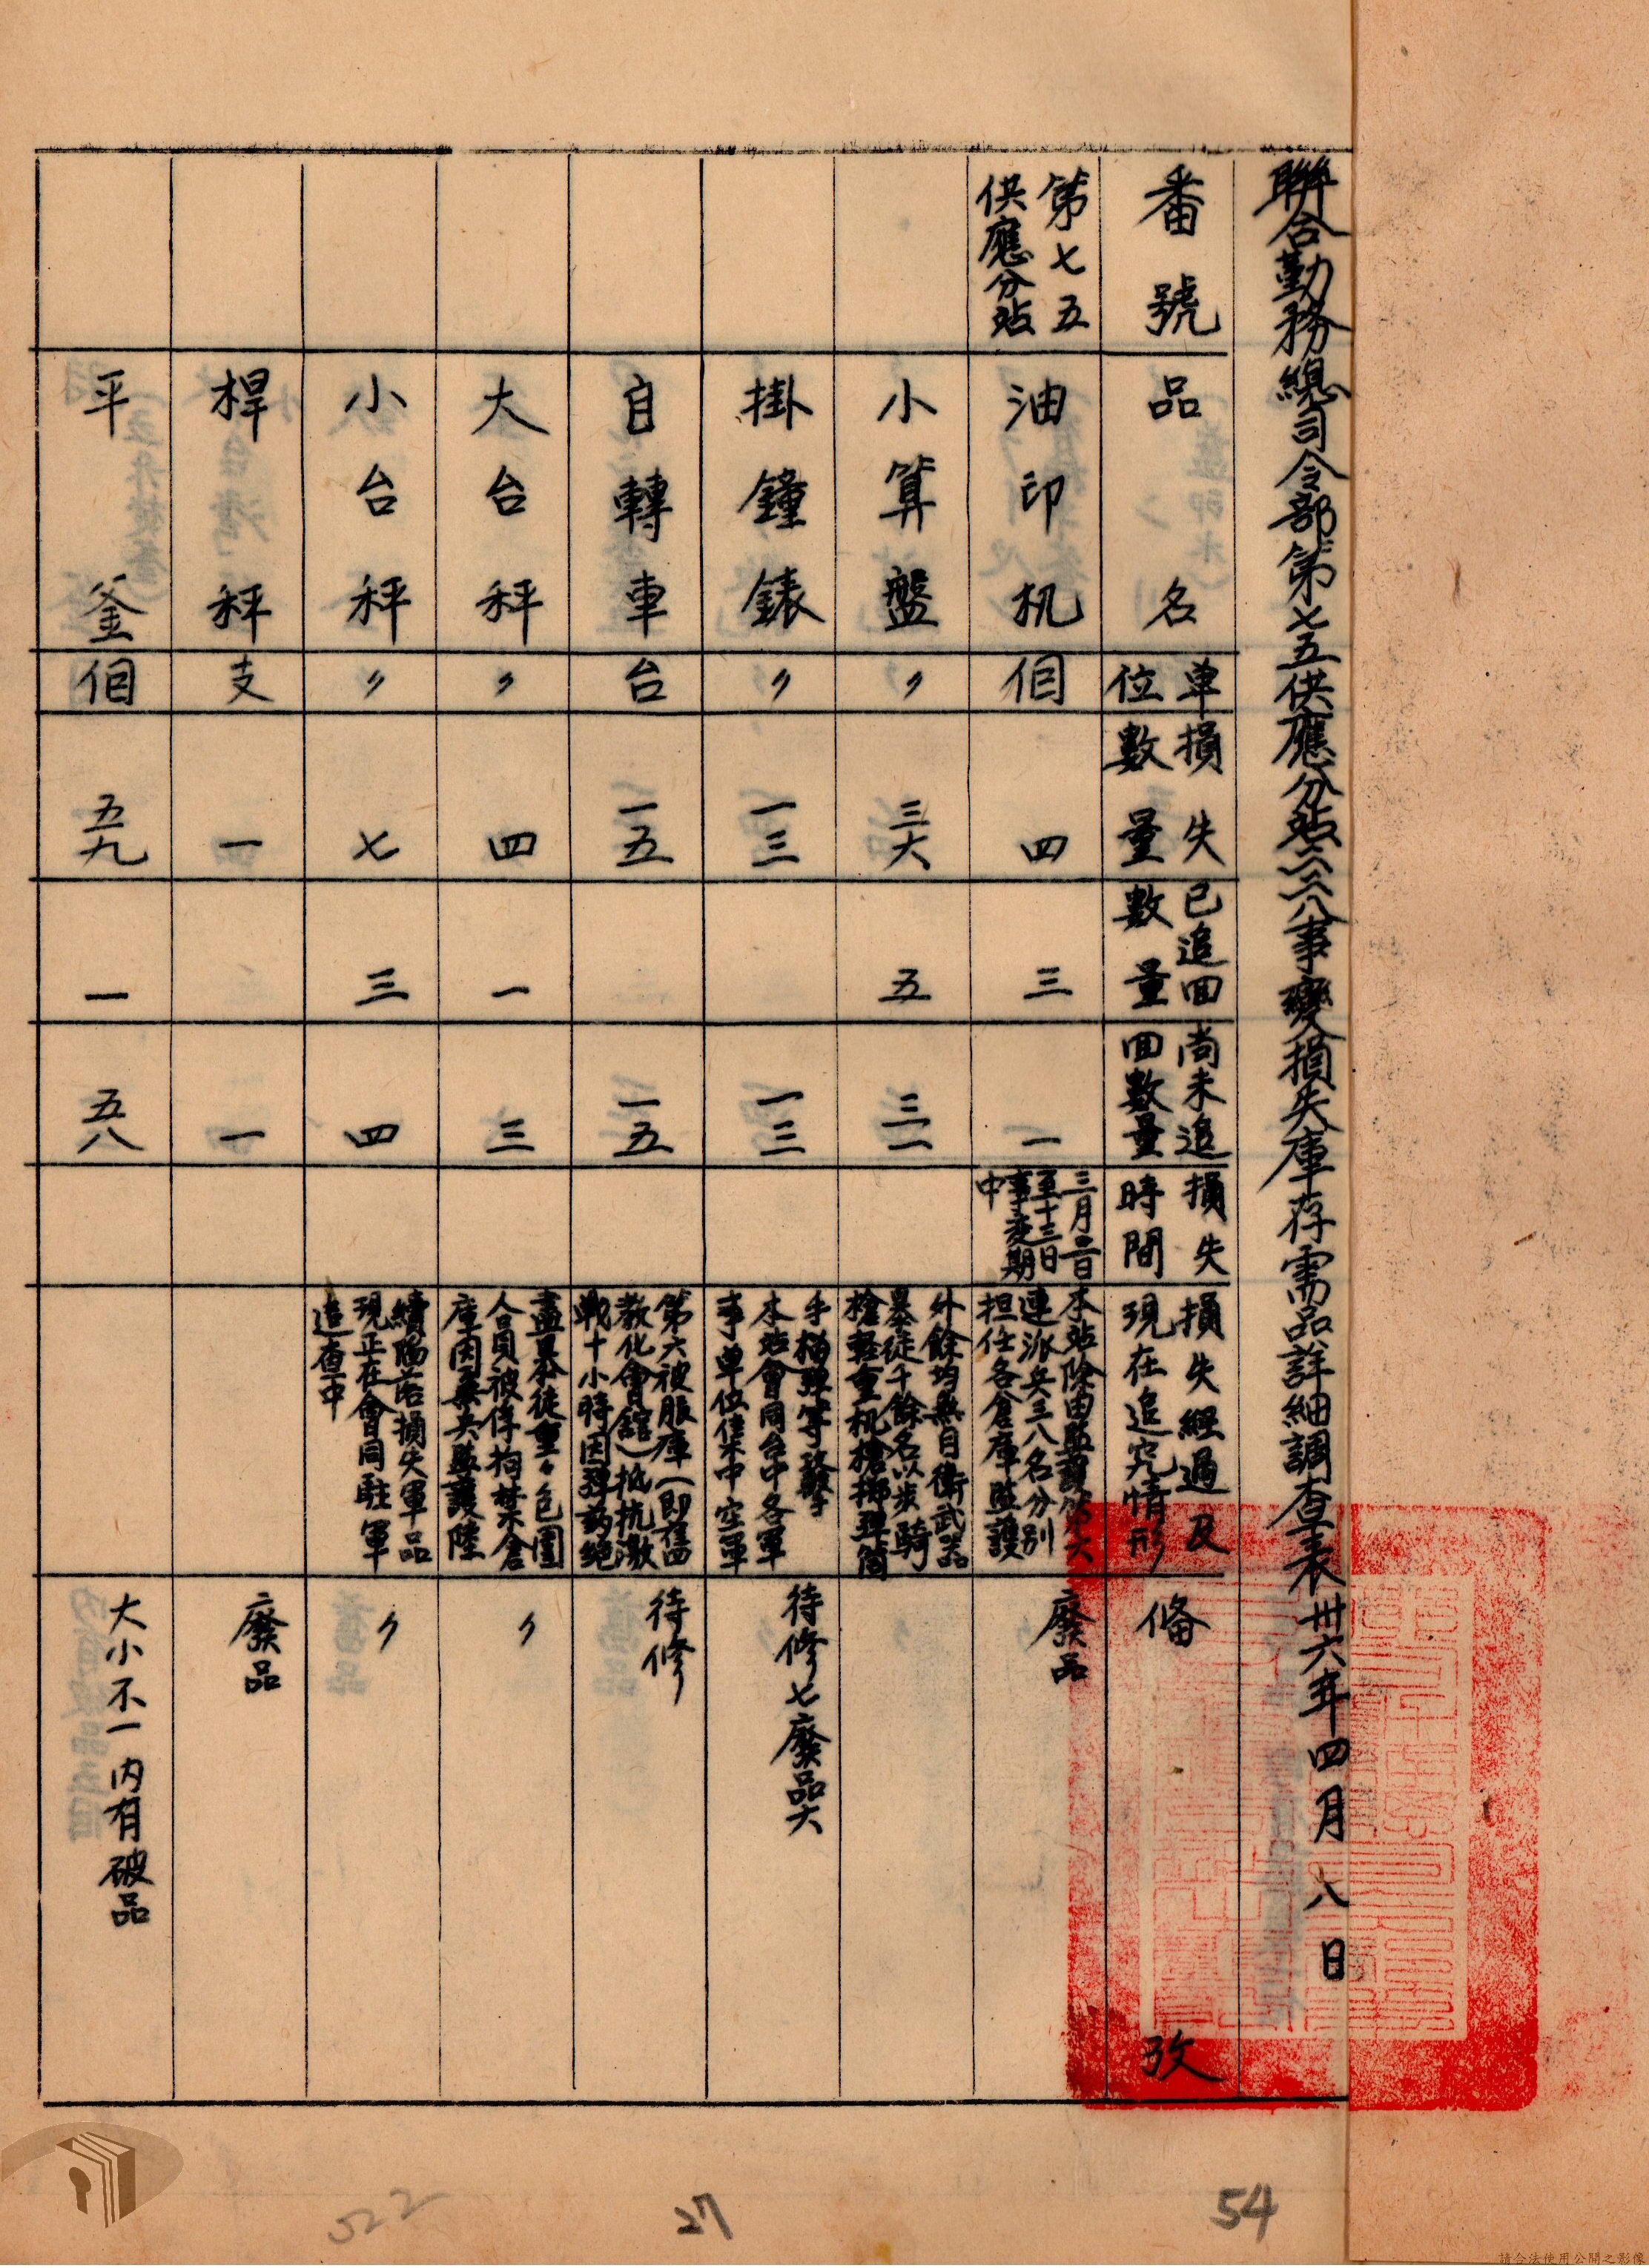 聯合勤務總司令部第七五供應分站二二八事變損失庫存需品詳細調查表 卅六年四月八日
番號
品名
單位
損失數量
已追回數量
尚未追回數量
損失時間
損失經過及現在追究情形
備攷
第七五供應分站
油印机
佰
四
三
一
三月二日至十三日事变期中
本站除由監護第六
連派兵三八名分別
担任各倉庫監護
廢品
小算盤
〃
三六
五
三一
外餘均無自衛武器
暴徒千餘名以步騎
槍輕重机槍擲彈筒
掛鐘錶
〃
一三
一三
手榴彈等襲擊
本站會同台中各軍
事單位集中空軍
待修七廢品六
自轉車
台
一五
一五
第六被服庫（即舊
教化會館）抵抗激
戰十小時因彈药绝
待修
大台秤
〃
四
一
三
盡暴徒重々包圍
人員被俘拘禁倉
庫因無兵監護陸
〃
小台秤
〃
七
三
四
續陷落損失軍品
現正在會同駐軍
追查中
〃
桿秤
支
一
一
廢品
平釜
佰
五九
一
五八
大小不一內有破品
522
27
54
請合法使用公開之影像